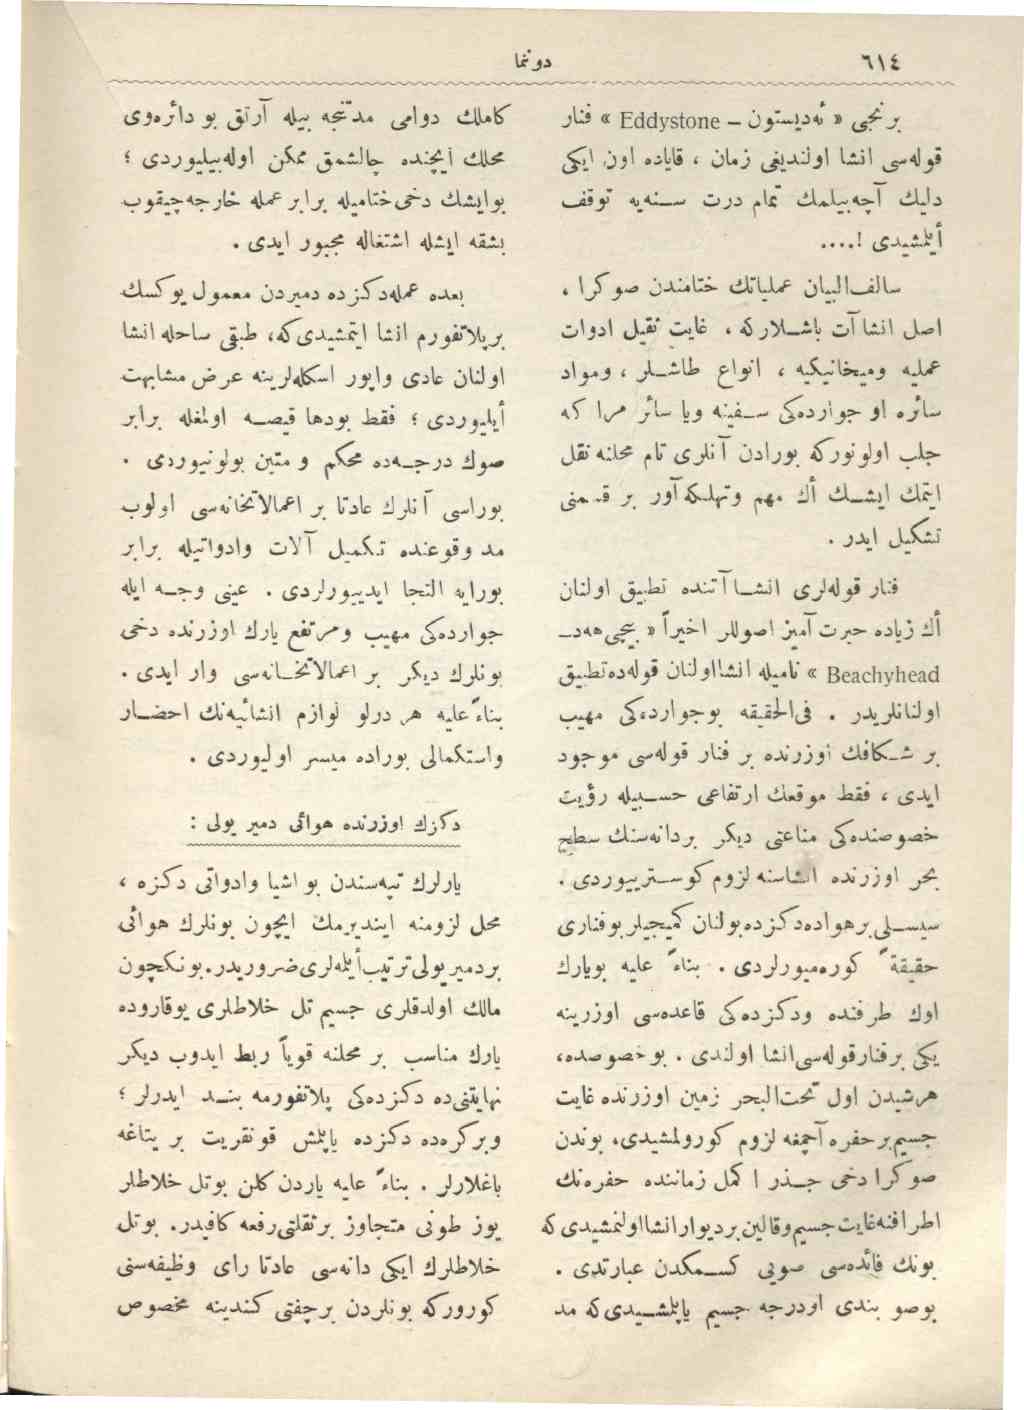 ٦١٤
دونما
برنجی « ئه‌دیستون – Eddystone » فنار
قوله‌سی انشا اولندیغی زمان ، قایاده اون ایکی
دلیك آچه‌بیلمك تمام درت سنه‌یه توقف
أیلمشیدی !....
سالف‌البیان عملیاتك ختامندن صوکرا ،
اصل انشاآت باشلارکه ، غایت ثقیل ادوات
عملیه ومیخانیکیه ، انواع طاشلر ، ومواد
سائره او جوارده‌کی سفینه ویا سائر مرا کبه
جلب اولونورکه بورادن آنلری تام محلنه نقل
ایتمك ایشك أك مهم وتهلکه‌آور بر قسمنی
تشکیل ایدر .
فنار قوله‌لری انشاآتنده تطبیق اولنان
أك زیاده حیرت آمیز اصوللر اخیراً « بیچی هه‌د–
Beachyhead » نامیله انشااولنان قوله‌ده تطبیق
اولنانلریدر . فی‌الحقیقه بوجوارده‌کی مهیب
بر شکافك اوزرنده بر فنار قوله‌سی موجود
ایدی ، فقط موقعك ارتفاعی حسبیله رؤیت
خصوصنده‌کی مناعتی دیکر بردانه‌سنك سطح
بحر اوزرنده انشاسنه لزوم کوستریبوردی .
سیسلی برهواده‌دکزده‌بولنان کمیجیلر بوفناری
حقیقةً کوره‌میورلردی . بناءً علیه بویارك
اوك طرفنده ودکزده‌کی قاعده‌سی اوزرینه
یکی برفنارقوله‌سی‌انشا اولندی . بوخصوصده،
هرشیدن اول تحت‌البحر زمین اوزرنده غایت
جسیم‌برحفره‌آچمغه لزوم کورولمشیدی، بوندن
صوکرا دخی جذر ا کمل زماننده حفره‌نك
اطرافنه‌غایت‌جسیم‌وقالین‌بردیوارانشااولنمشیدی که
بونك فائده‌سی صویی کسمکدن عبارتدی .
بوصو بندی اودرجه جسیم یاپلمشیدی که مد
کاملك دوامی مدتنجه بیله آرتق بو دائره‌وی
محلك ایچنده چالشمق ممکن اوله‌بیلیوردی ؛
بوایشك دخی‌ختامیله برابر عمله خارجه‌چیقوب
بشقه ایشله اشتغاله مجبور ایدی .
بعده عمله‌دکزده دمیردن معمول یوکسك
برپلاتفورم انشا ایتمشیدی‌که، طبقی ساحله انشا
اولنان عادی واپور اسکله‌لرینه عرض مشابهت
أیلیوردی ؛ فقط بودها قیصه اولمغله برابر
صوك درجه‌ده محکم و متین بولونیوردی .
بوراسی آنلرك عادتا بر اعمالاتخانه‌سی اولوب
مد وقوعنده تکمیل آلات وادواتیله برابر
بورایه التجا ایدییورلردی . عینی وجه ایله
جوارده‌کی مهیب ومرتفع یارك اوزرنده دخی
بونلرك دیکر بر اعمالاتخانه‌سی وار ایدی .
بناءً‌علیه هر درلو لوازم انشائیه‌نك احضار
واستکمالی بوراده میسر اولیوردی .
دکزك اوزرنده هوائی دمیر یولی :
یارلرك تپه‌سندن بو اشیا وادواتی دکزه ،
محل لزومنه ایندیرمك ایچون بونلرك هوائی
بردمیریولی‌ترتیب‌أیله‌لری‌ضروریدر.بونکچون
مالك اولدقلری جسیم تل خلاطلری یوقاروده
یارك مناسب بر محلنه قویاً ربط ایدوب دیکر
نهایتنی‌ده دکزده‌کی پلاتفورمه بند ایدرلر ؛
وبرکره‌ده دکزده یاپلمش قونقریت بر یتاغه
باغلارلر . بناءً علیه یاردن کلن بوتل خلاطلر
یوز طونی متجاوز برثقلتی‌رفعه کافیدر. بوتل
خلاطلرك ایکی دانه‌سی عادتا رای وظیفه‌سنی
کورورکه بونلردن برچفتی کندینه مخصوص